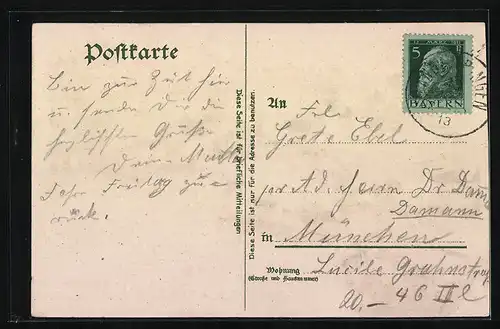 Postkarte
Bin zur Zeit hier
u. sende Dir die
herzlichsten Grüße
Deine Mutter
Fahre Freitag zu-
rück.
Diese Seite ist für briefliche Mitteilungen
Diese Seite ist nur für die Adresse zu benutzen.
12 MÄRZ 1911
5
BAYERN
INGEN
13
An
Frl.
Grete Ebel
per Ad. Herrn Dr Dam
Damann
in München
Wohnung
(Straße und Hausnummer)
Lucile Grahnstraße
20.– 46 III l